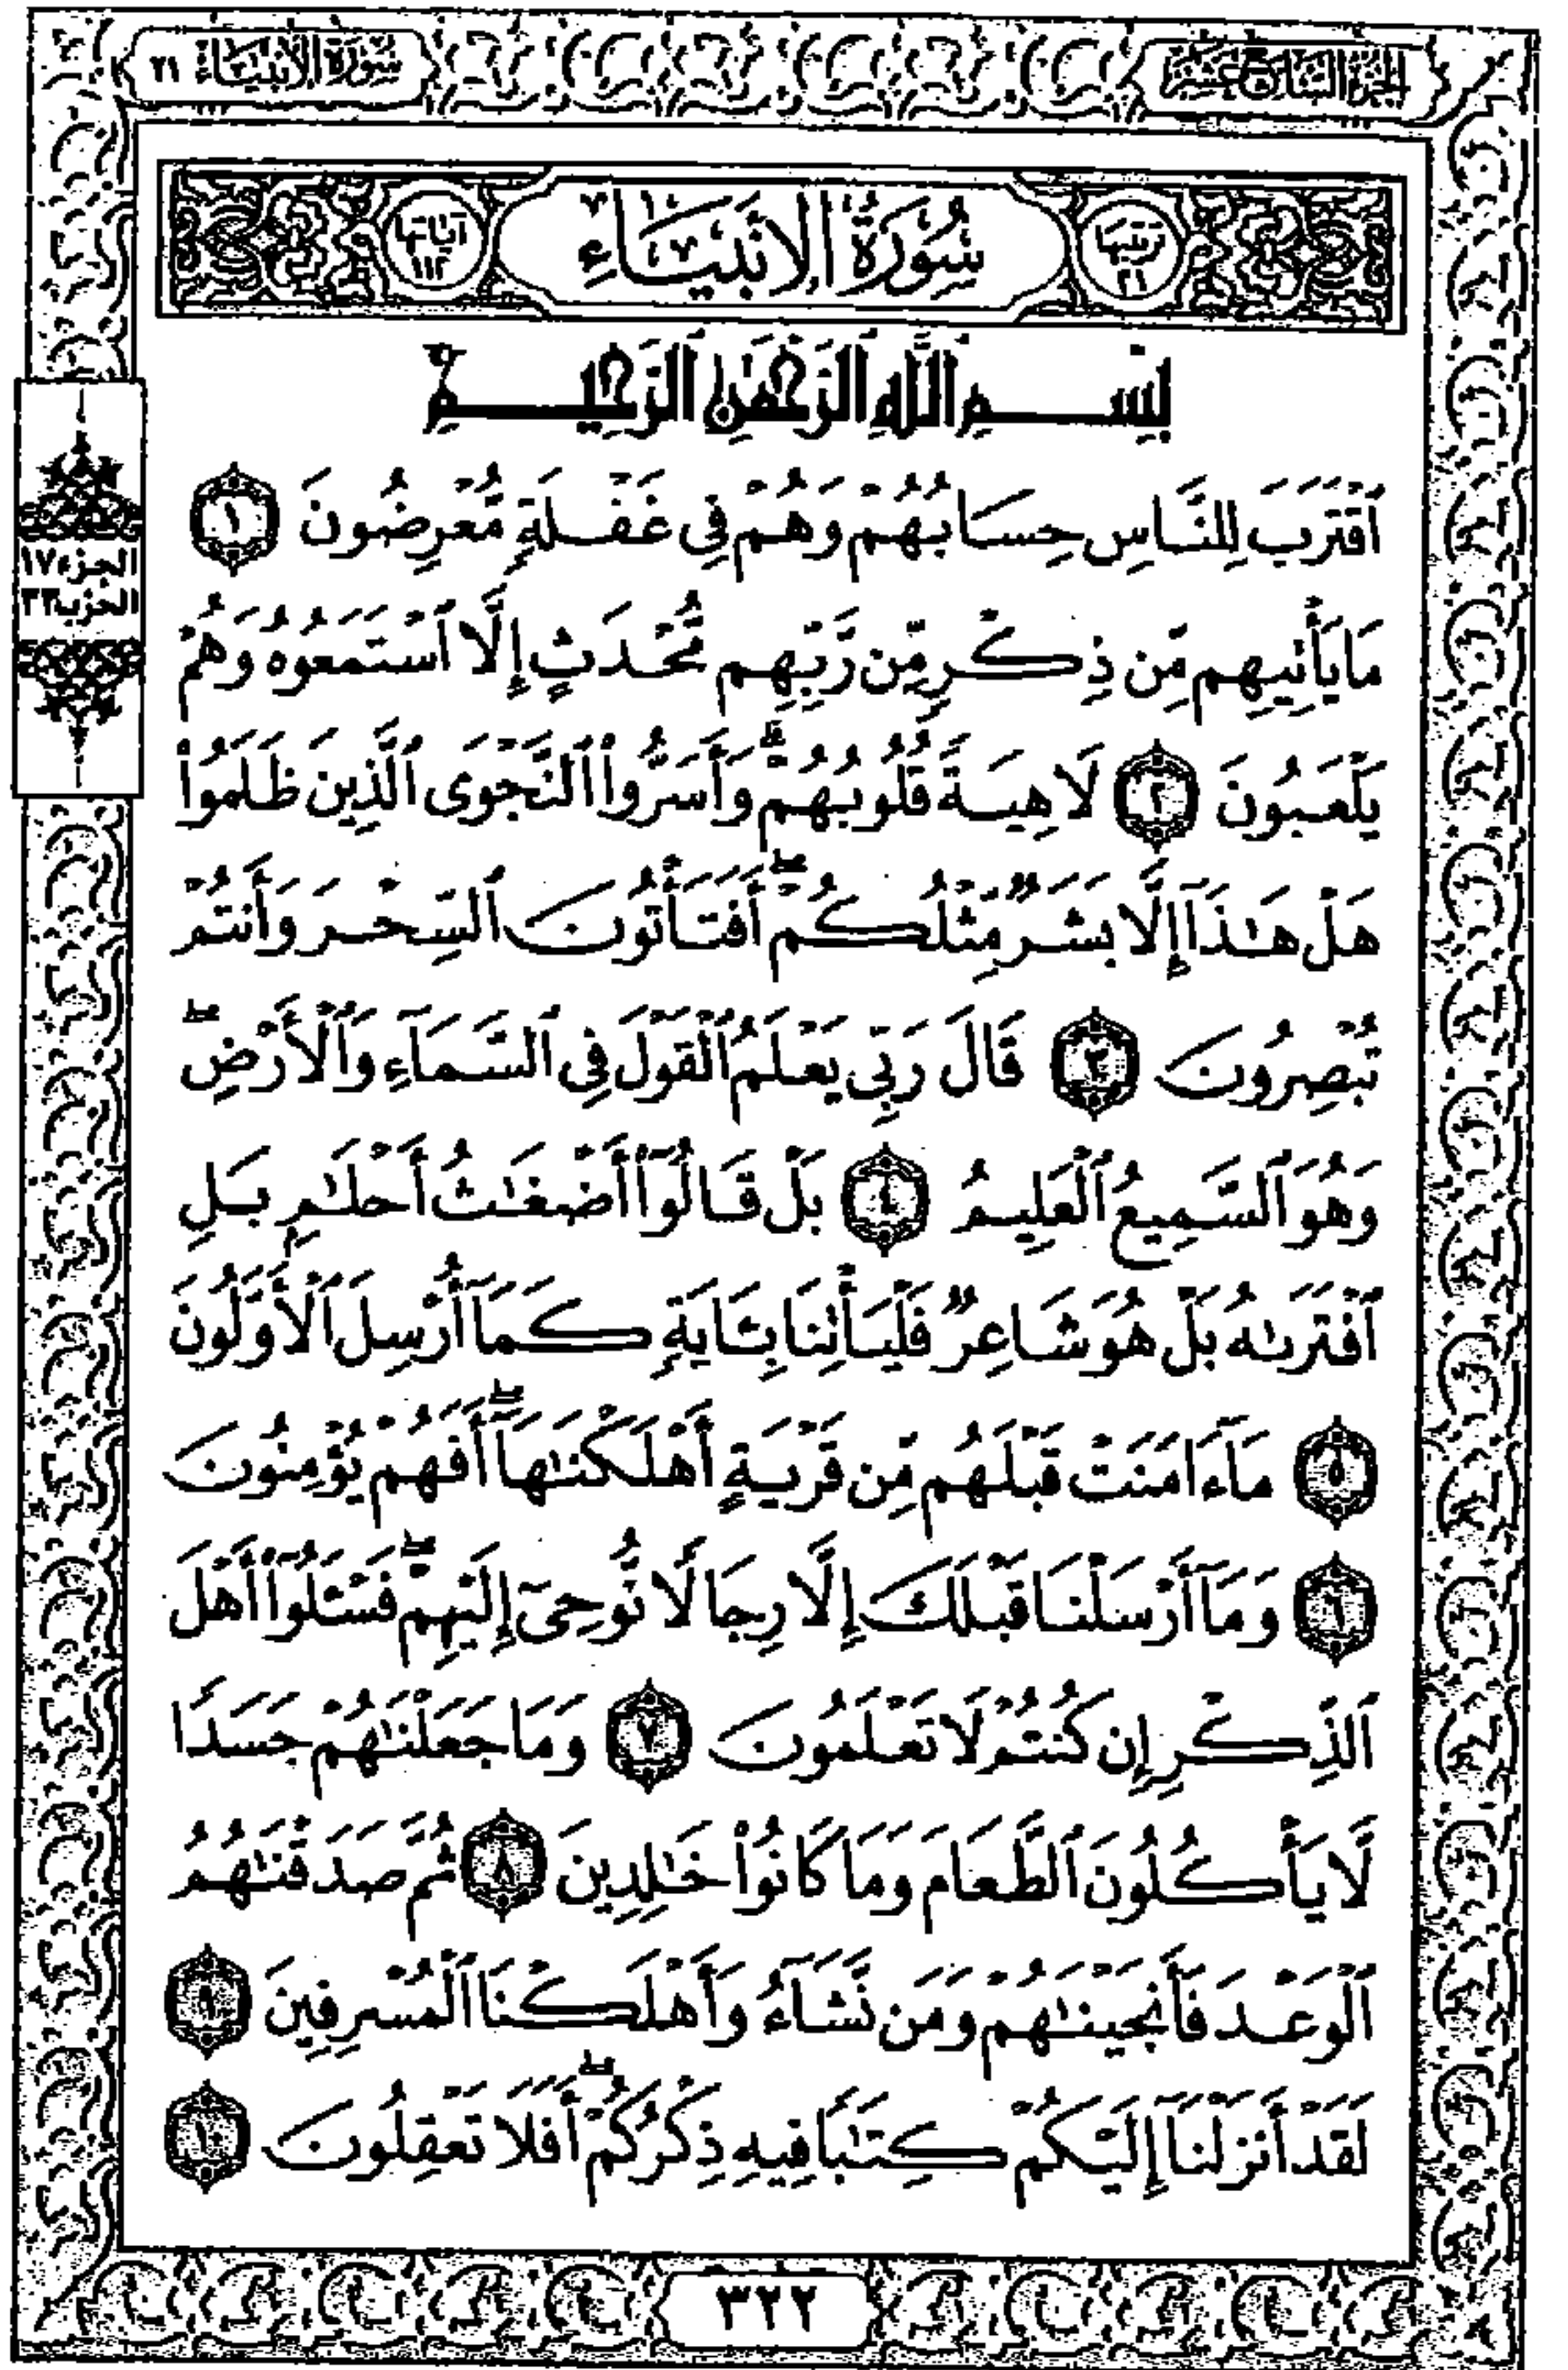 الجزء السابع عشر
سورة الأنبياء ٢١
ترتيبها ٢١
سُورَةُ الأَنبِيَاءِ
آياتها ١١٢
بِسْمِ ٱللَّهِ ٱلرَّحْمَٰنِ ٱلرَّحِيمِ
ٱقْتَرَبَ لِلنَّاسِ حِسَابُهُمْ وَهُمْ فِى غَفْلَةٍ مُّعْرِضُونَ ١
مَا يَأْتِيهِم مِّن ذِكْرٍ مِّن رَّبِّهِم مُّحْدَثٍ إِلَّا ٱسْتَمَعُوهُ وَهُمْ
يَلْعَبُونَ ٢ لَاهِيَةً قُلُوبُهُمْ ۗ وَأَسَرُّوا۟ ٱلنَّجْوَى ٱلَّذِينَ ظَلَمُوا۟
هَلْ هَٰذَآ إِلَّا بَشَرٌ مِّثْلُكُمْ ۖ أَفَتَأْتُونَ ٱلسِّحْرَ وَأَنتُمْ
تُبْصِرُونَ ٣ قَالَ رَبِّى يَعْلَمُ ٱلْقَوْلَ فِى ٱلسَّمَآءِ وَٱلْأَرْضِ ۖ
وَهُوَ ٱلسَّمِيعُ ٱلْعَلِيمُ ٤ بَلْ قَالُوٓا۟ أَضْغَٰثُ أَحْلَٰمٍ بَلِ
ٱفْتَرَىٰهُ بَلْ هُوَ شَاعِرٌ فَلْيَأْتِنَا بِـَٔايَةٍ كَمَآ أُرْسِلَ ٱلْأَوَّلُونَ
٥ مَآ ءَامَنَتْ قَبْلَهُم مِّن قَرْيَةٍ أَهْلَكْنَٰهَآ ۖ أَفَهُمْ يُؤْمِنُونَ
٦ وَمَآ أَرْسَلْنَا قَبْلَكَ إِلَّا رِجَالًا نُّوحِىٓ إِلَيْهِمْ ۖ فَسْـَٔلُوٓا۟ أَهْلَ
ٱلذِّكْرِ إِن كُنتُمْ لَا تَعْلَمُونَ ٧ وَمَا جَعَلْنَٰهُمْ جَسَدًا
لَّا يَأْكُلُونَ ٱلطَّعَامَ وَمَا كَانُوا۟ خَٰلِدِينَ ٨ ثُمَّ صَدَقْنَٰهُمُ
ٱلْوَعْدَ فَأَنجَيْنَٰهُمْ وَمَن نَّشَآءُ وَأَهْلَكْنَا ٱلْمُسْرِفِينَ ٩
لَقَدْ أَنزَلْنَآ إِلَيْكُمْ كِتَٰبًا فِيهِ ذِكْرُكُمْ ۖ أَفَلَا تَعْقِلُونَ ١٠
الجزء ١٧
الحزب ٣٣
٣٢٢